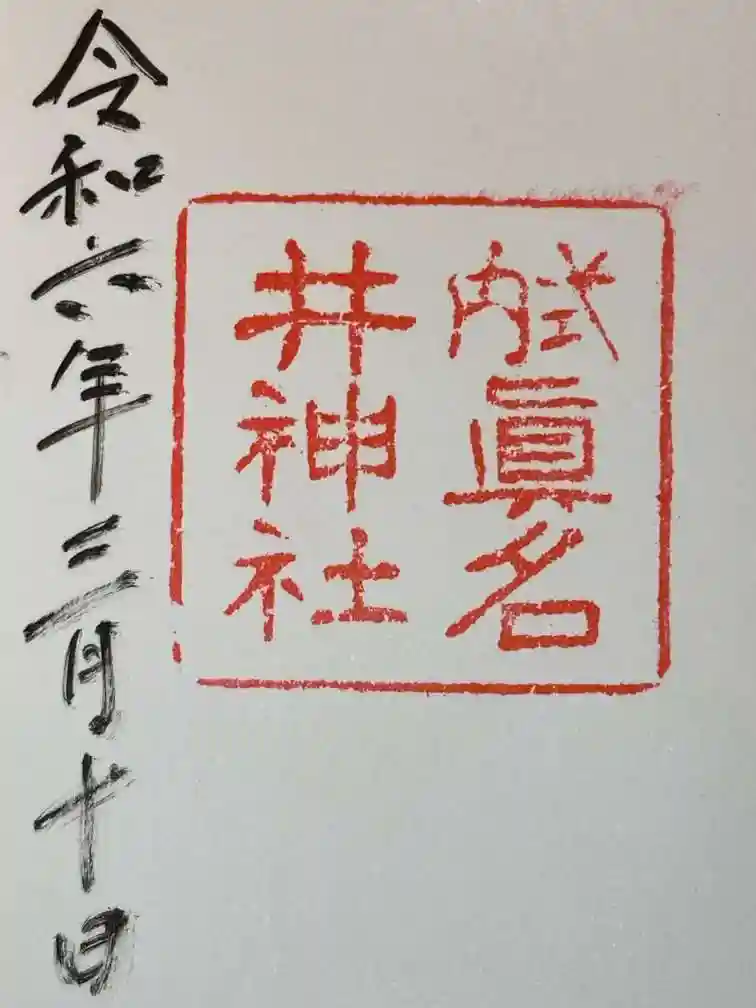 式内眞名
井神社
令和六年三月十日